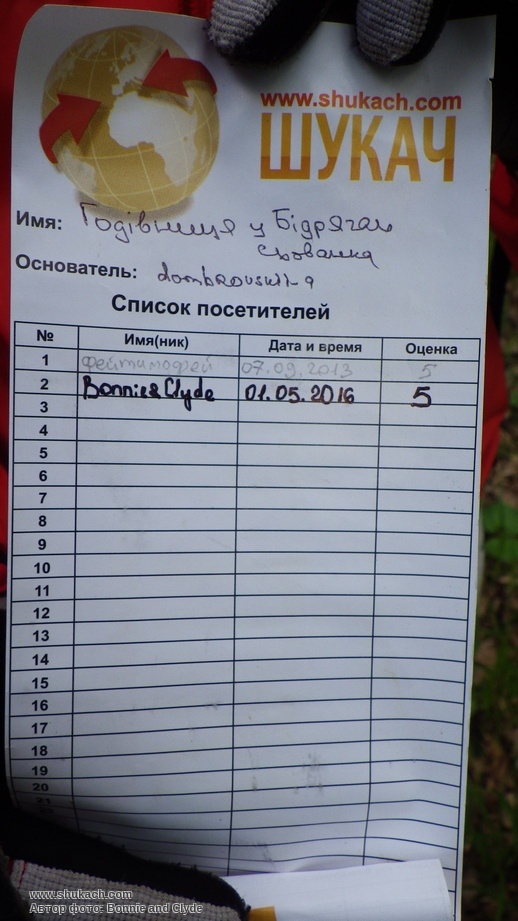 www.shukach.com
ШУКАЧ
Имя: Годівниця у Бідрягах
схованка
Основатель:
Список посетителей
№ Имя(ник) Дата и время Оценка
1 фейтимофей 07.09.2013 5
2 Bonnie&Clyde 01.05.2016 5
3
4
5
6
7
8
9
10
11
12
13
14
15
16
17
18
19
20
21
www.shukach.com
Автор фото: Bonnie and Clyde